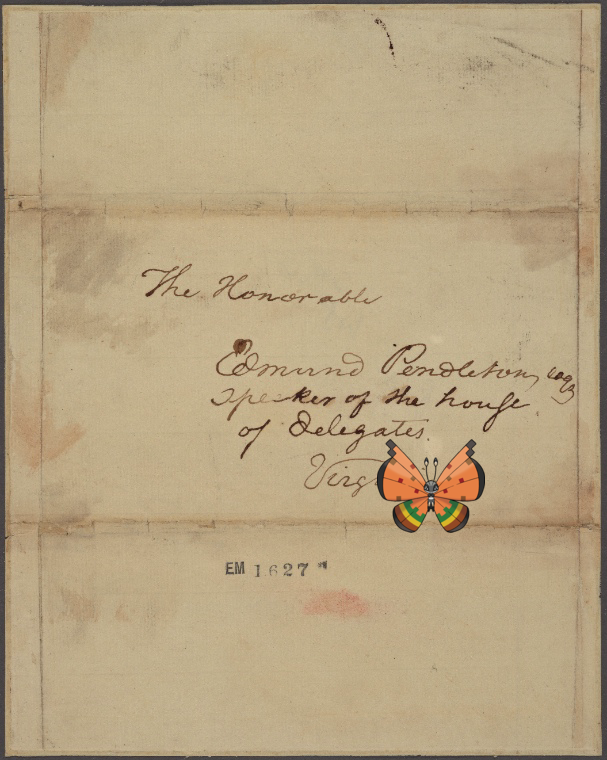 The Honorable
Edmund Pendleton, esq
Speaker of the house
of Delegates.
EM 1627